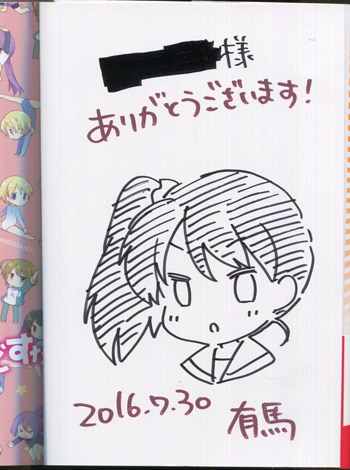 様
ありがとうございます!
2016.7.30
有馬